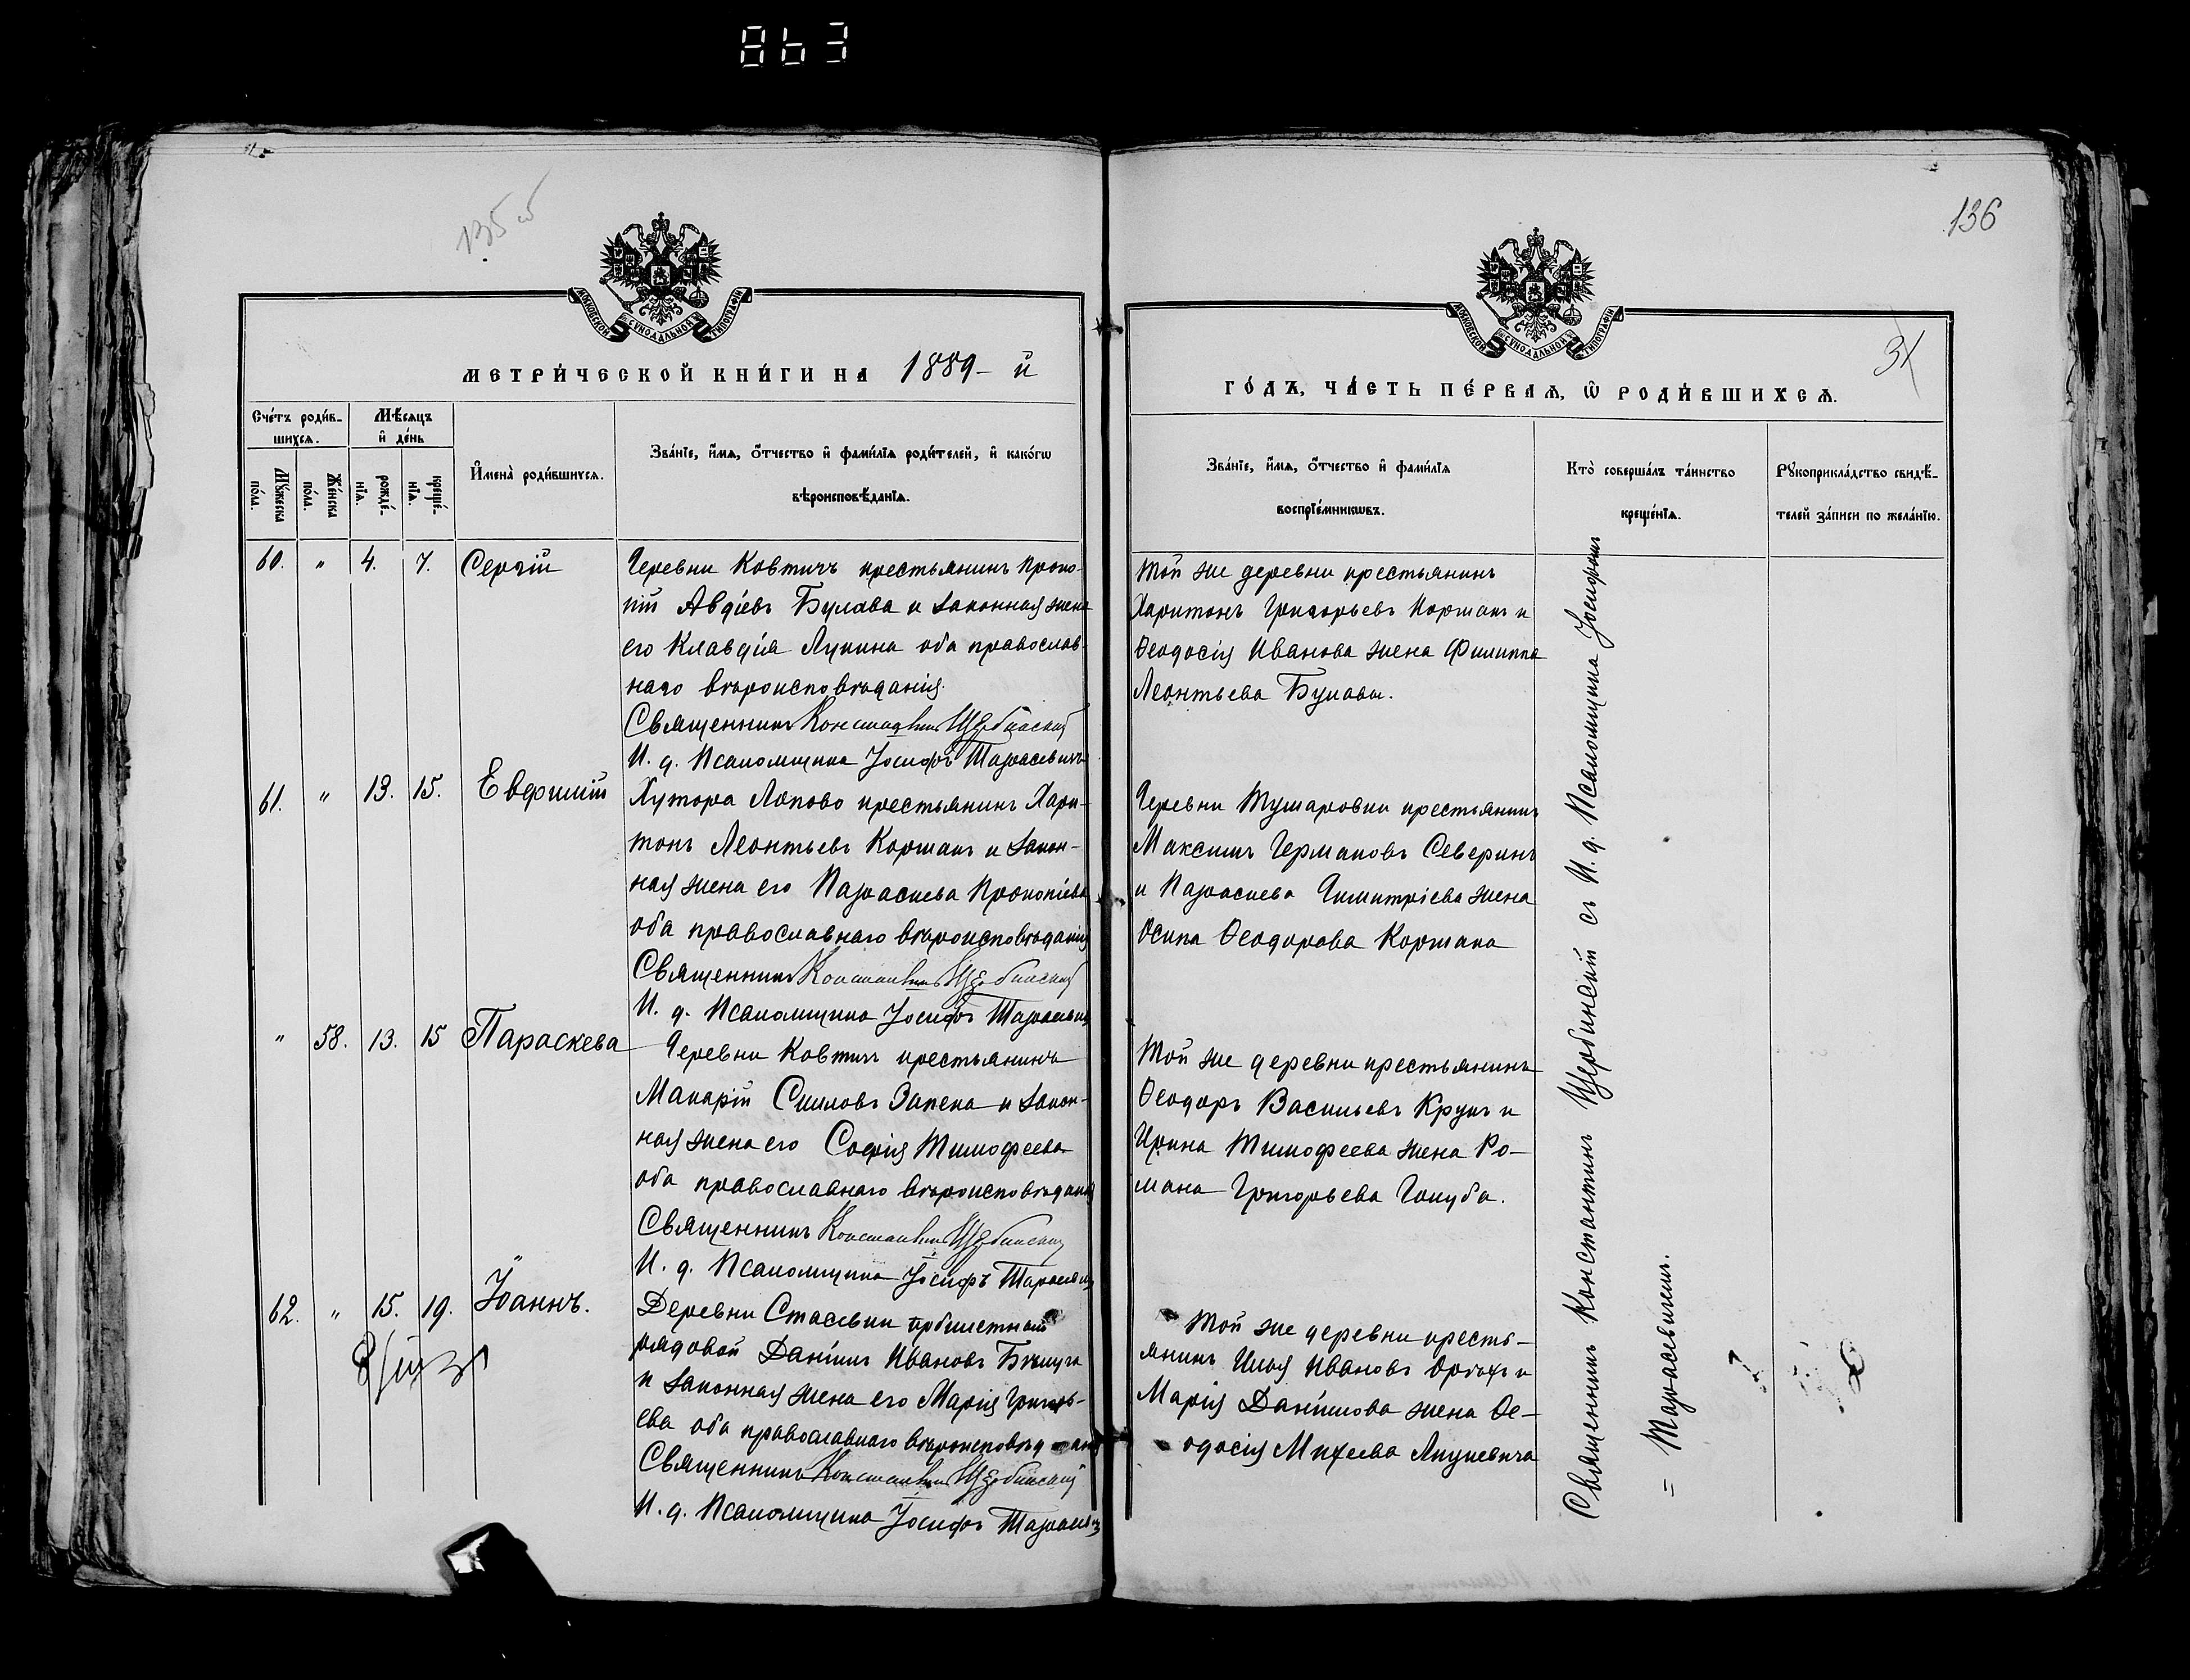 863
135 об
136
МОСКОВСКОЙ СУНОДАЛЬНОЙ ТИПОГРАФІИ
МОСКОВСКОЙ СУНОДАЛЬНОЙ ТИПОГРАФІИ
31
МЕТРИ́ЧЕСКОЙ КНИ́ГИ НА 1889-й
ГО́ДЪ, ЧА́СТЬ ПЕ́РВАѦ, Ѡ РОДИ́ВШИХСѦ.
Сче́тъ роди́в-
шихсѧ.
Мѣ́сѧцъ
и де́нь
Му́жеска по́ла.
Же́нска по́ла.
рожде́-
нїѧ.
креще́-
нїѧ.
И҆мена̀ роди́вшихсѧ.
Зва́нїе, и҆́мѧ, ѻ҆́тчество и҆ фами́лїѧ роди́телей, и҆ како́гѡ
вѣроисповѣ́данїѧ.
Зва́нїе, и҆́мѧ, ѻ҆́тчество и҆ фами́лїѧ
воспрїе́мникѡвъ.
Кто̀ соверша́лъ та́инство
креще́нїѧ.
Рꙋкоприкла́дство свидѣ́-
телей за́писи по жела́нїю.
60. " 4. 7. Сергій
Деревни Ковтичъ крестьянинъ Проко-
пій Авдіевъ Булава и законная жена
его Клавдія Лукина оба православ-
наго вѣроисповѣданія.
Священникъ Константинъ Щербинскій
И. д. Псаломщика Іосифъ Тарасевичъ
Той же деревни крестьянинъ
Харитонъ Григорьевъ Коршакъ и
Ѳеодосія Иванова жена Филиппа
Леонтьева Булавы.
61. " 13. 15. Евфимій
Хутора Ляпово крестьянинъ Хари-
тонъ Леонтьевъ Коршакъ и закон-
ная жена его Параскева Прокопіева
оба православнаго вѣроисповѣданія
Священникъ Константинъ Щербинскій
И. д. Псаломщика Іосифъ Тарасевичъ
Деревни Тушаровки крестьянинъ
Максимъ Германовъ Северинъ
и Параскева Димитріева жена
Осипа Ѳеодорова Коршака
" 58. 13. 15 Параскева
Деревни Ковтичъ крестьянинъ
Макарій Симовъ Запека и закон-
ная жена его Софія Тимофеева
оба православнаго вѣроисповѣданія
Священникъ Константинъ Щербинскій
И. д. Псаломщика Іосифъ Тарасевичъ
Той же деревни крестьянинъ
Ѳеодоръ Васильевъ Крукъ и
Ирина Тимофеева жена Ро-
мана Григорьева Голуба.
62. " 15. 19. Іоаннъ.
Деревни Стасевки
рядовой Даніилъ Ивановъ
и законная жена его Марія Григорь-
ева оба православнаго вѣроисповѣданія
Священникъ Константинъ Щербинскій
И. д. Псаломщика Іосифъ Тарасевичъ
Той же деревни кресть-
янинъ Илья Ивановъ и
Марія Даніилова жена Ѳе-
одосія Михеева Янушевича
Священникъ Константинъ Щербинскій съ И. д. Псаломщика Іосифомъ
= Тарасевичемъ.